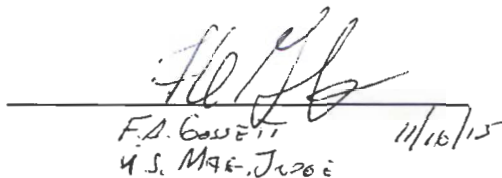 F.A. Gossett 11/10/15
U.S. Mag. Judge